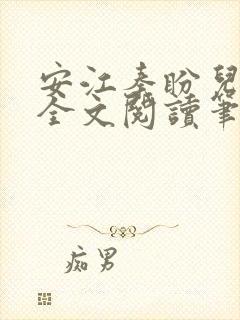 安江秦盼兒
全文閱讀筆
痴男